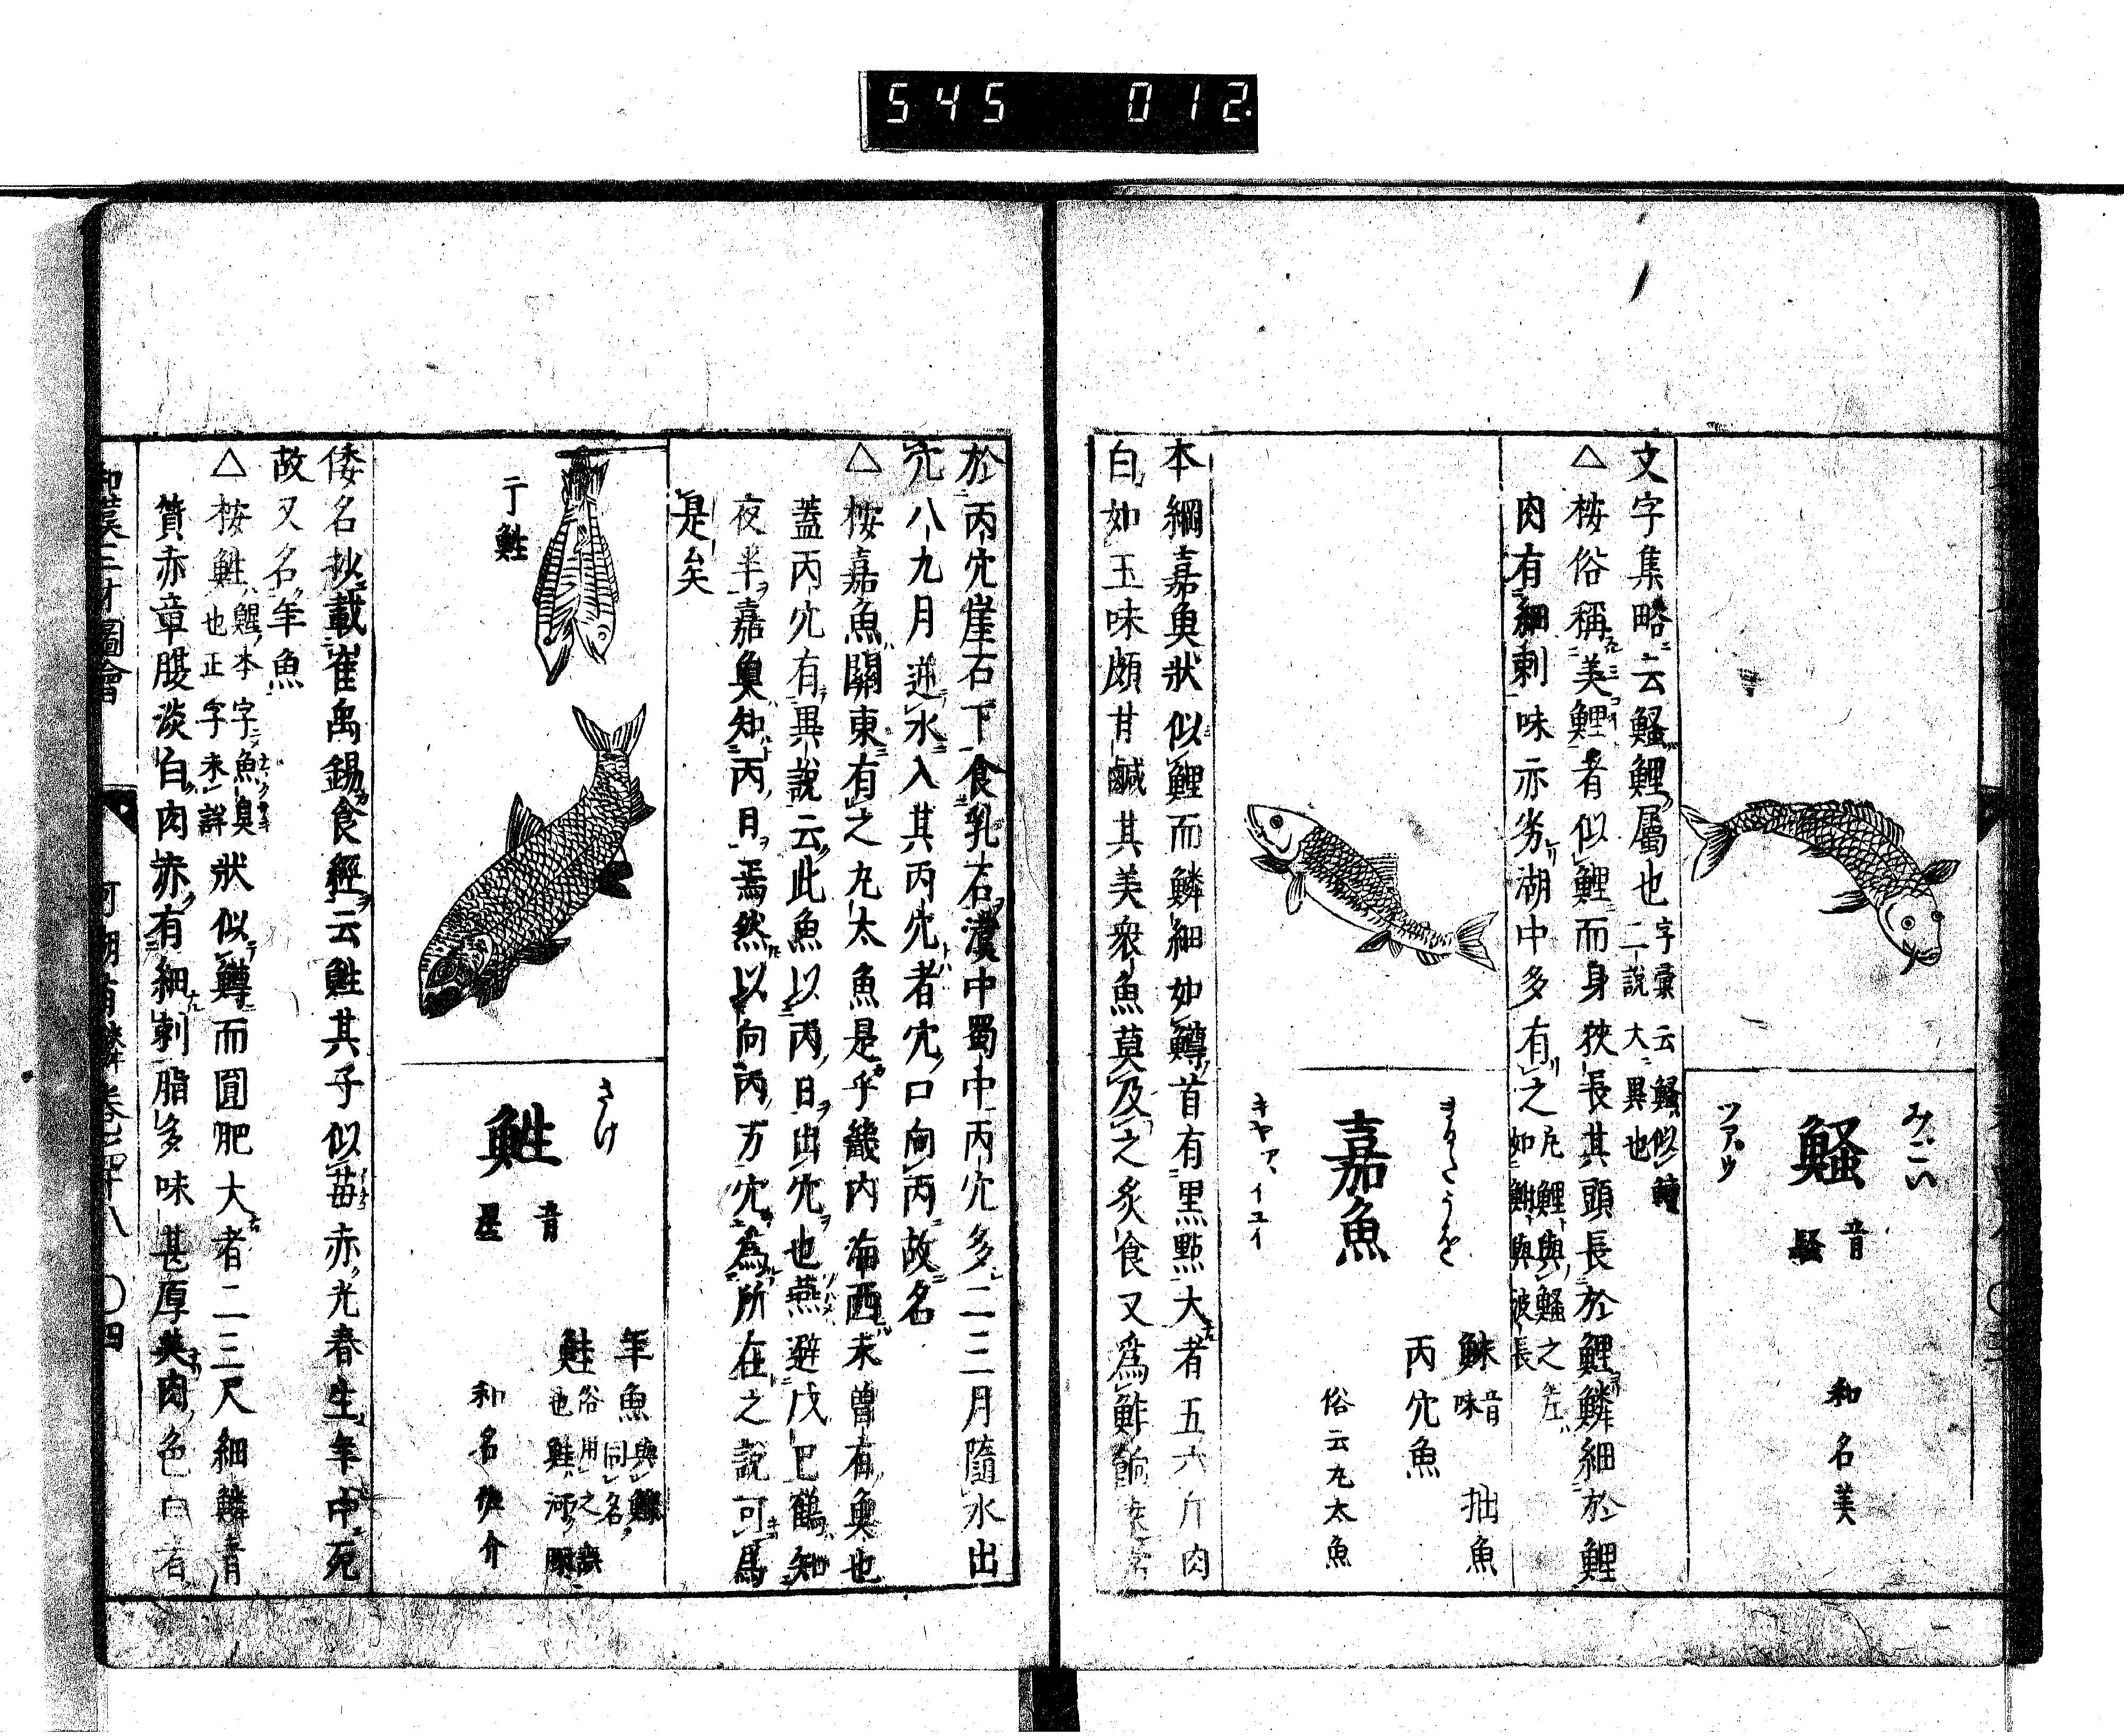 545 012.
みごい
鰠
音騷
ツアウ
和名美
文字集略云鰠鯉屬也
字彙云鰠似鱣
二說大異也
△桉俗稱美鯉者似鯉而身狹長其頭長於鯉鱗細於鯉
肉有細刺味亦劣湖中多有之
凡鯉與鰠之
まるたうを
嘉魚
キヤアイユイ
鮇
音味
拙魚
丙穴魚
俗云丸太魚
本綱嘉魚狀似鯉而鱗細如鱒首有黑點大者五六斤肉
白如玉味頗甘鹹其美衆魚莫及之炙食又爲鮓
於丙穴崖石下食乳石沫中蜀中丙穴多二三月隨水出
穴八九月逆水入其丙穴者穴口向丙故名
△桉嘉魚關東有之丸太魚是乎畿內海西未曾有魚也
蓋丙穴有異說云此魚以丙日出穴也燕避戊巳鶴知
夜半嘉魚知丙日焉然以向丙方穴爲所在之說可爲
是矣
干鮏
さけ
鮏
音星
年魚
與鰷同名
鮭
俗用之
也鮭河豚
和名佐介
倭名抄載崔禹錫食經云鮏其子似苺赤光春生年中死
故又名年魚
△桉鮏
鯹本字魚臭
也正字未詳
狀似鱒而圓肥大者二三尺細鱗青
質赤章腹淡白肉赤有細刺脂多味甚厚美肉色白者
和漢三才圖會
河湖有鱗卷之四十八
〇四